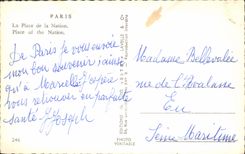 PARIS
La Place de la Nation.
Place of the Nation.
De Paris je vous envoie
mon bon souvenir ainsi
qu'à Marcelle j'espère
vous retrouver en parfaite
santé. Joseph
246
PHOTO
VÉRITABLE
Madame Bellevallée
rue de l'
Eu
Seine Maritime